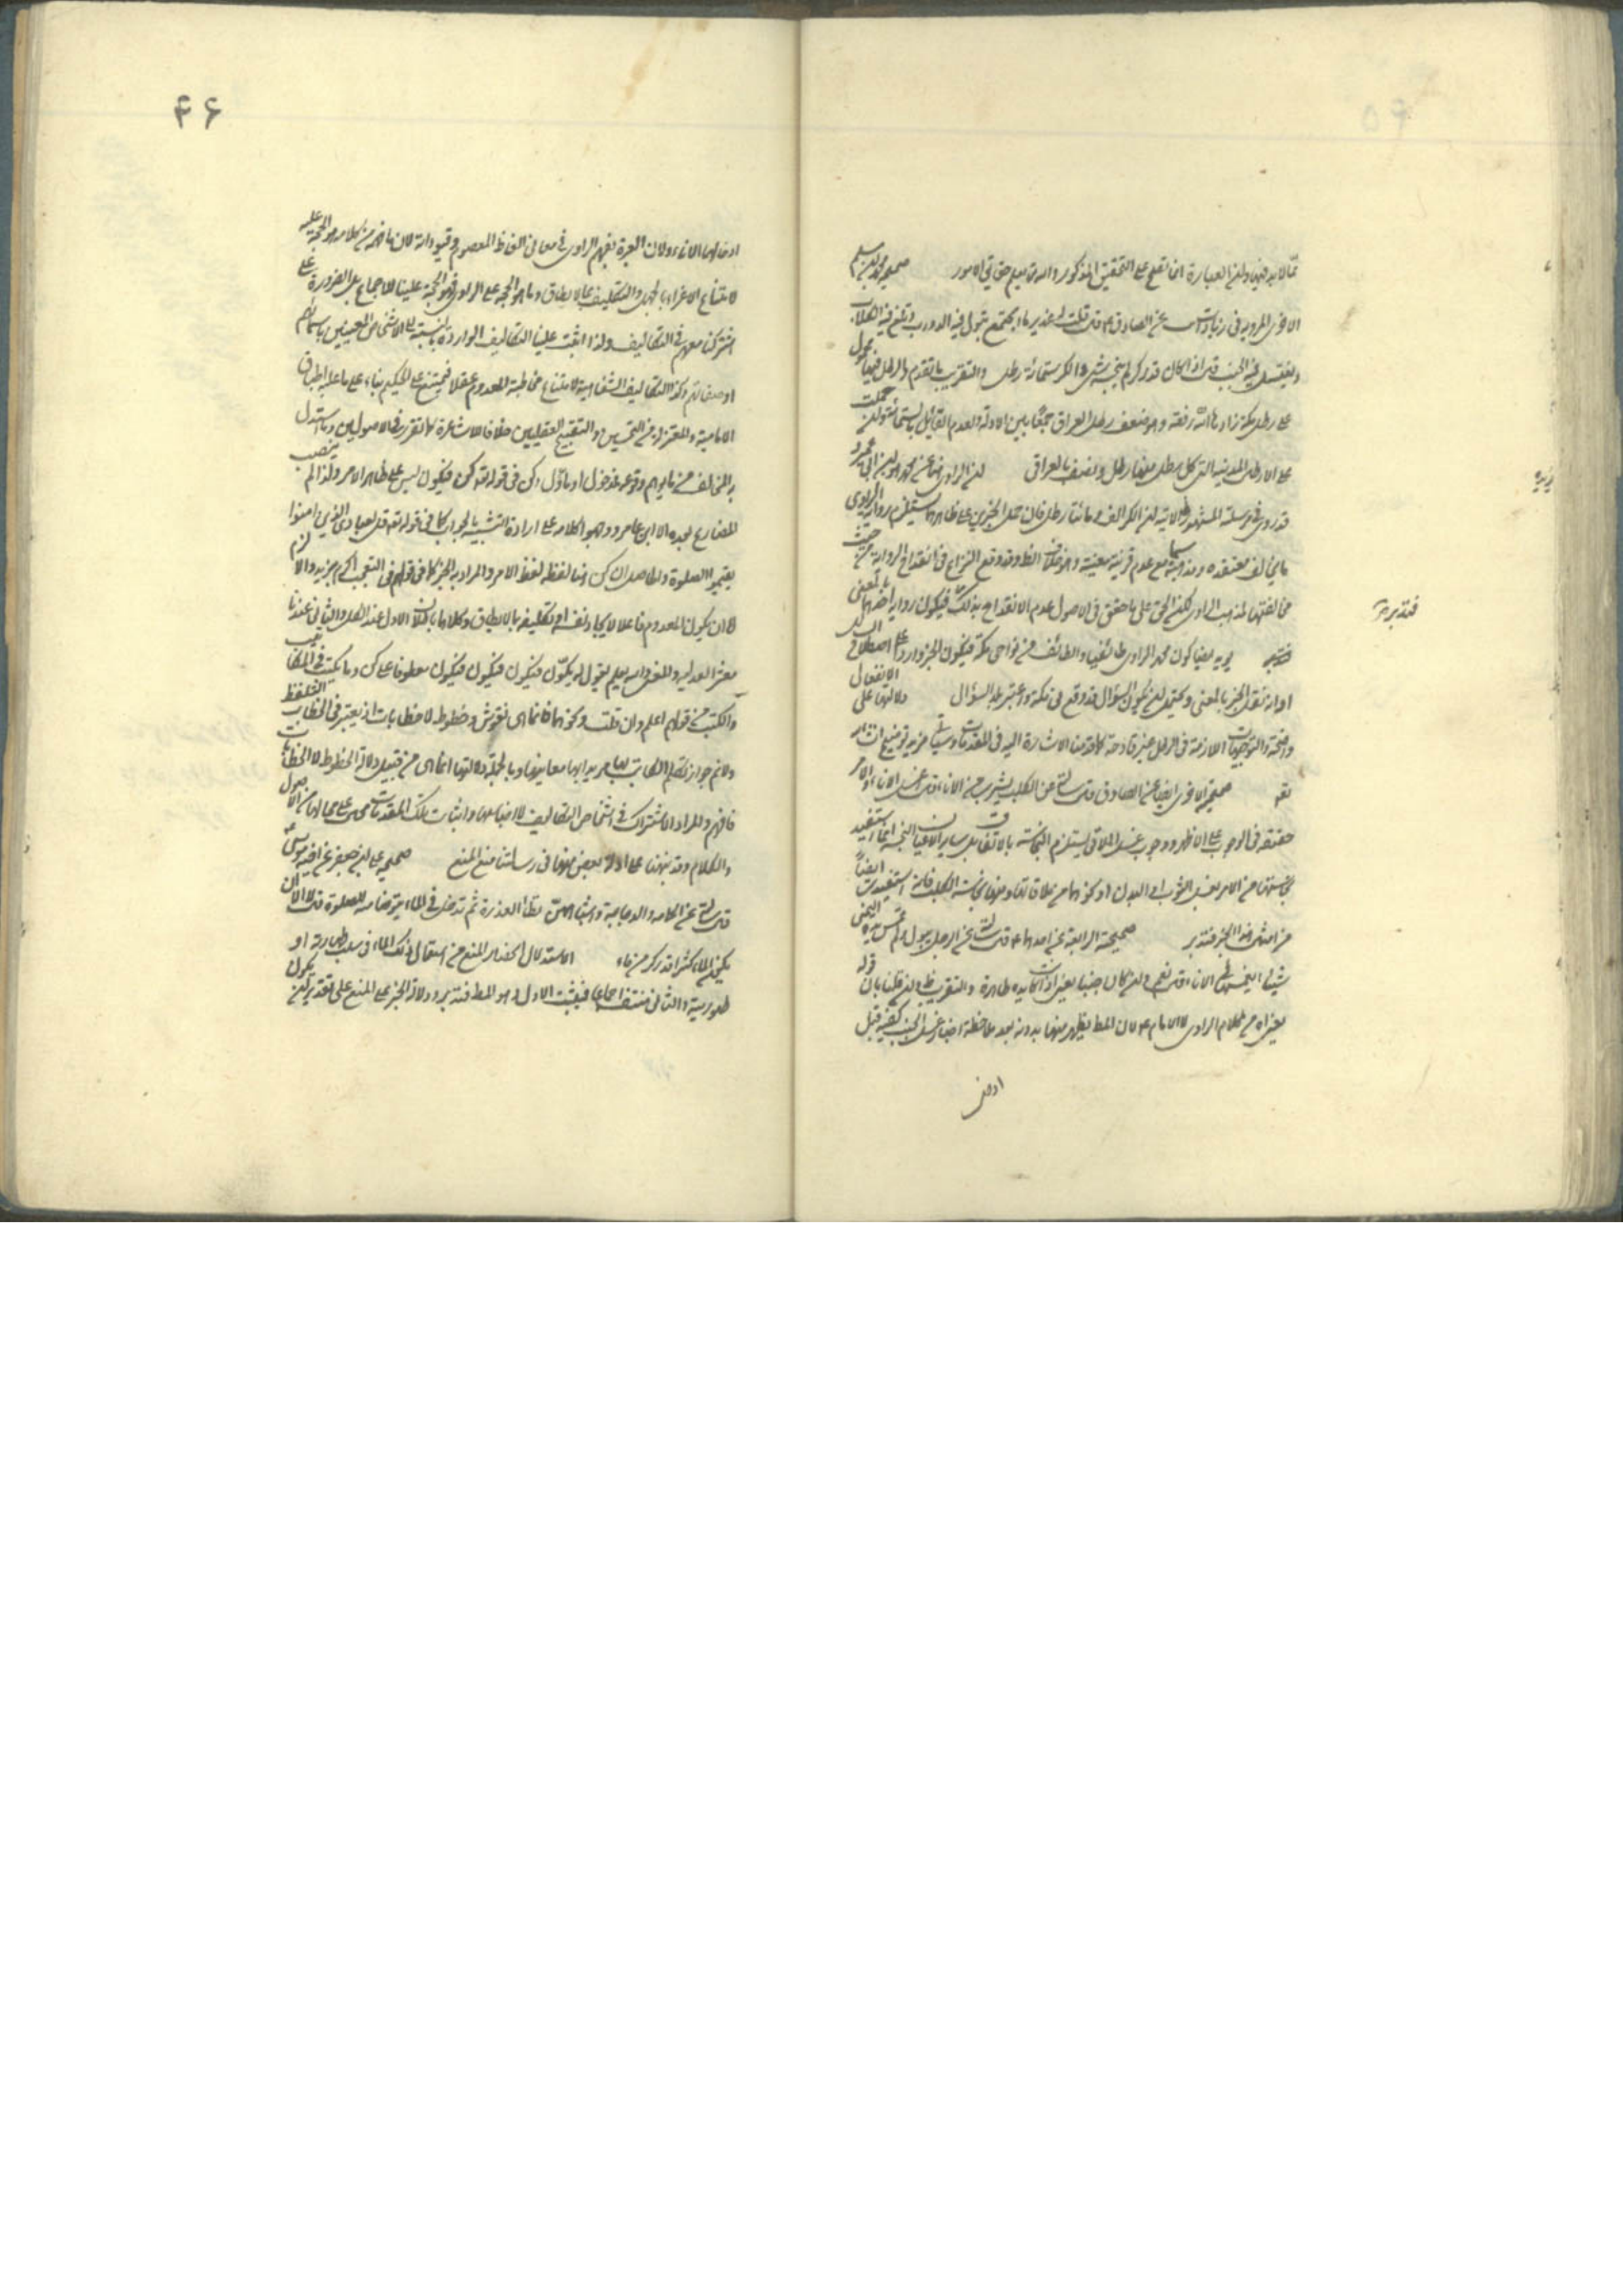 مما لابد فيها ولفظ العبارة انما تقع على التحقيق المذكور والله تعالى يعلم حقايق الامور صحيحة محمد بن مسلم
الاخرى المروية في زيادات عن الصادق ع قال قلت له غدير ماء مجتمع تبول فيه الدواب وتلغ فيه الكلاب
ويغتسل فيه الجنب قال اذا كان قدر كر لم ينجسه شئ والكر ستمائة رطل والتقريب ما تقدم والرطل فيها محمول
على رطل مكة زادها الله رفعة وهو ضعف رطل العراق جمعا بين الادلة ولعدم القائل بستمائة لو حملت
على الارطال المدنية التي كل رطل منها رطل ونصف بالعراق لان الراوي منها عن محمد هو ابن ابي عمير و
قد روى في مرسلته المشهورة الآتية ان الكر الف ومائتا رطل فان حمل الخبرين على ظاهرهما يستلزم رواية الراوي
ما يخالف معتقده ومذهبه سيما مع عدم قرينة معينة وهو خلاف الظ وقد وقع النزاع في انقداح الرواية من حيث
مخالفتها لمذهب الراوي لكن الحق على ما حقق في الاصول عدم الانقداح بذلك فيكون رواية احدهما بالمعنى
فتدبر يؤيده ايضا كون محمد الراوي طائفيا والطائف من نواحي مكة فيكون الخبر واردا على اصطلاح البلد
او انه نقل الخبر بالمعنى ويحتمل ان يكون السؤال قد وقع في مكة واعتبر بلد السؤال دلالتها على الانفعال
واضحة والتوجيهات اللازمة في الرطل غير قادحة كما قدمنا الاشارة اليه في المقدمات وسيأتي مزيد توضيح انشاء
الله صحيحة الاخرى ايضا عن الصادق قال سالته عن الكلب يشرب من الاناء قال اغسل الاناء والامر
حقيقة في الوجوب على الاظهر ووجوب غسل الملاقي يستلزم النجاسة بالاتفاق بل ساير الاعيان النجسة انما استفيد
نجاستها من الامر بغسل الثوب او البدن او نحوهما من ملاقاتها ومنها نجاسة الكلب فانه استفيدت ايضا
من امثال هذا الخبر فتدبر صحيحة الرابعة عن احدهما ع قال سالته عن الرجل يبول ولم يمس يده اليمنى
شيئا ايغمسها في الاناء قال نعم وان كان جنبا يعني اذا كانت يده طاهرة والتقريب ظ وان قلنا بان قوله
يعني اه من كلام الراوي لا الامام ع لان المط يظهر منها بدونه بعد ملاحظة اخبار غسل الجنب كفيه قبل
ادخا
فتدبر منه
۴۶
ادخالهما الاناء ولان العبرة بفهم الراوي في معاني الفاظ المعصوم وقيوداته لان ما فهمه من كلامه هو الحجة عليه
لامتناع الاغراء بالجهل والتكليف بما لا يطاق وما هو الحجة على الراوي فهو الحجة علينا للاجماع بل الضرورة على
اشتراكنا معهم في التكاليف ولذا اثبت علينا التكاليف الواردة بالنسبة الى الاشخاص المعينين باسمائهم
او صفاتهم وكذا التكاليف الشفاهية لامتناع مخاطبة المعدوم عقلا فيمتنع على الحكيم بناء على ما عليه اطباق
الامامية والمعتزلة من التحسين والتقبيح العقليين خلافا للاشاعرة كما تقرر في الاصولين وما استدل
به المخالف من ما يوهم وقوعه مدخول او مأول اي كن في قوله تعالى كن فيكون ليس على ظاهر الامر ولذا لم ينصب
المضارع بعده الا ابن عامر ووجهوا كلامه على ارادة التشبيه بالجواب كما في قوله تعالى قل لعبادي الذين امنوا
يقيموا الصلوة والحاصل ان كن هنا لفظه لفظ الامر والمراد به الخبر كما في قولهم في التعجب اكرم بزيد والا لزم
اما ان يكون المعدوم فاعلا لايجاد نفسه او تكليفه بما لا يطاق وكلاهما باطلان الاول عند الكل والثاني عندنا
معشر العدلية والمعنى والله يعلم يقول له يكون فيكون فيكون فيكون معطوفا على كن وما يكتب في المكاتيب
والكتب من قولهم اعلم وان قلت ونحوهما فانما هي نقوش وخطوط لا خطابات اذ يعتبر في الخطاب التلفظ
ولا نم جواز تكلم الكاتب بها مريدا بها معانيها وبالجملة دلالتها انما هي من قبيل دلالة الخطوط لا الخطابات
فافهم والمراد الاشتراك في اشخاص التكاليف لا اصنافها واثبات تلك المقدمات على محالها من الاصول
والكلام وقد نبهنا على ادلة بعض منها في رسالتنا منبع المنع صحيحة علي بن جعفر عن اخيه موسى ع
قال سالته عن الحمامة والدجاجة واشباههن تطأ العذرة ثم تدخل في الماء يتوضأ منه للصلوة قال لا الا ان
يكون الماء كثيرا قدر كر من ماء الاستدلال انحصار المنع من استعمال ذلك الماء في سلب طهارته او
طهوريته والثاني منتف اجماعا فيثبت الاول وهو المط فتدبر ودلالة الخبر على المنع على تقدير ان يكون